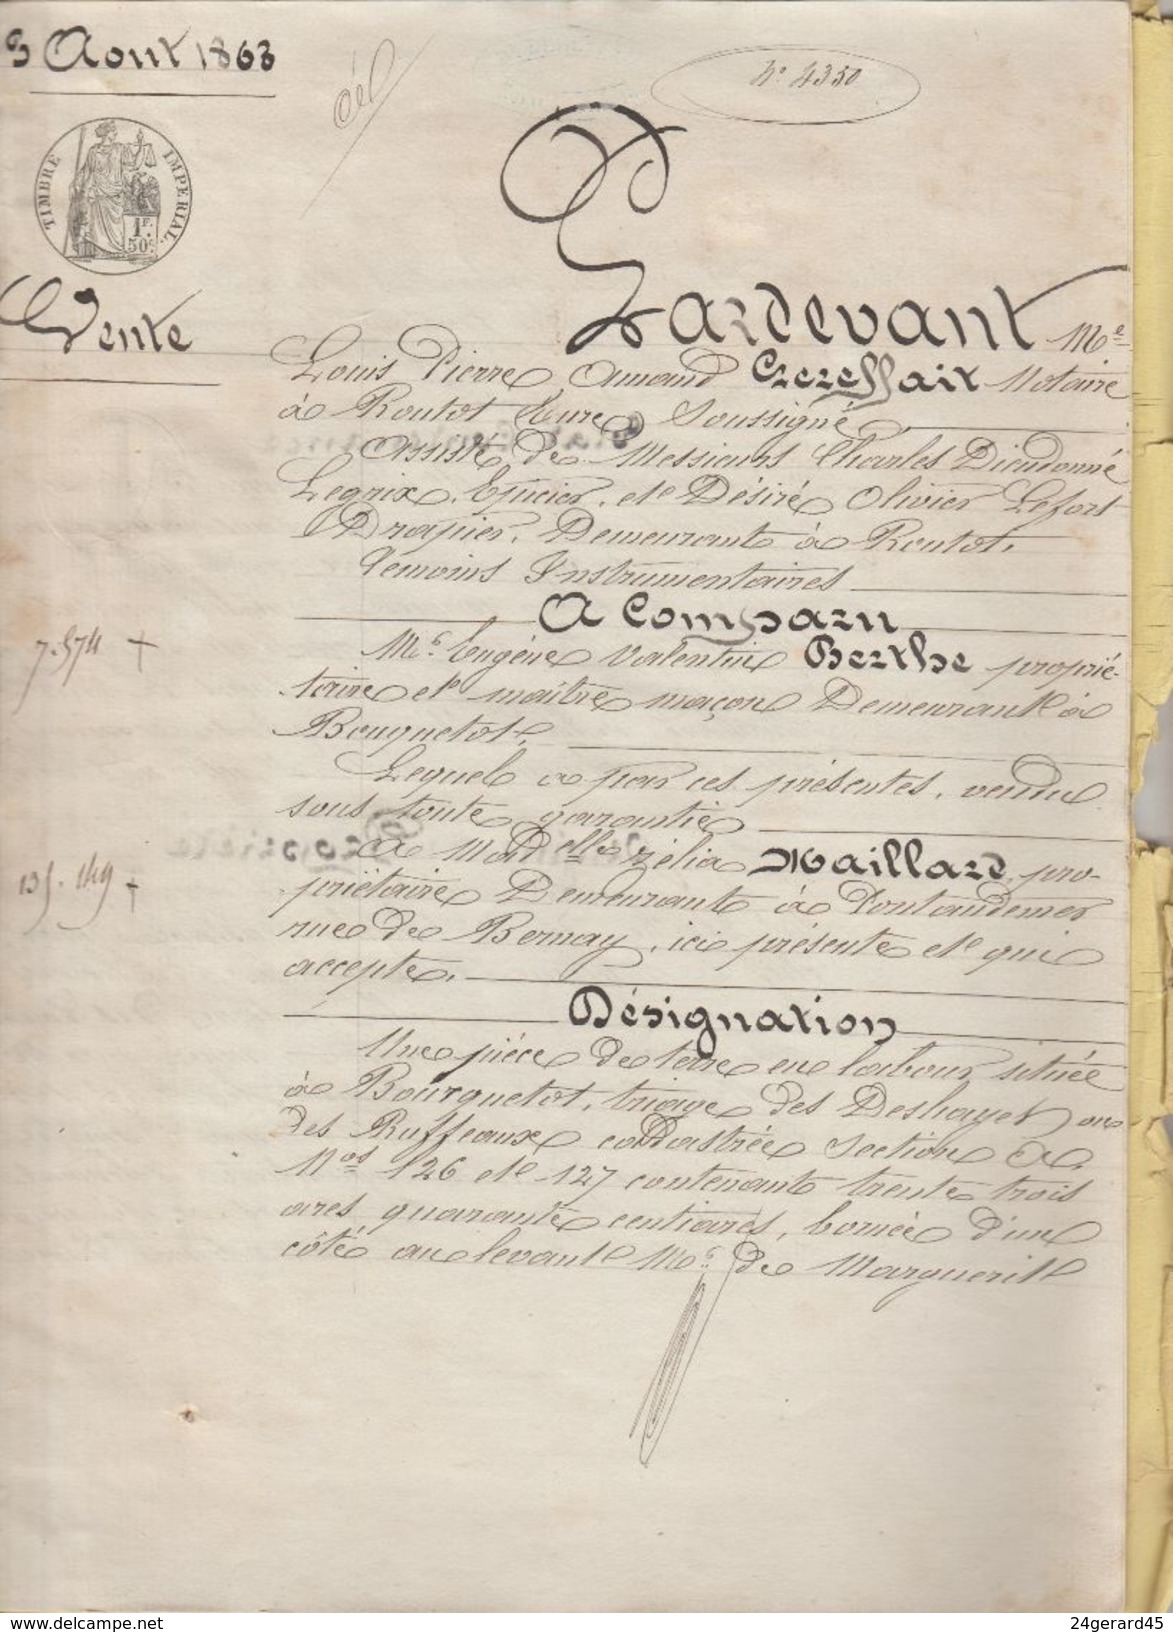 Aout 1863
dél
N° 4350
TIMBRE IMPERIAL
1F.
50c.
Vente
Pardevant Me
Louis Pierre Amand Notaire
à Routot (Eure) Soussigné
Assisté de Messieurs Charles Dieudonné
Legrix, Epicier, et Désiré Olivier Lefort
Drapier, Demeurant à Routot,
Témoins Instrumentaires
A Comparu
Mr Eugène Valentin Berthe proprié-
taire et maître maçon Demeurant à
Bouquetot,
Lequel a par ces présentes, vendu
sous toute garantie
A Madelle Zélia Maillard, pro-
priétaire Demeurant à Pontaudemer
rue de Bernay, ici présente et qui
accepte,
Désignation
Une pièce de terre en labour située
à Bourguetot, triage des Deshayes ou
des Ruffeaux cadastrée Section A
Nos 126 et 127 contenant trente trois
ares quarante centiares, bornée d'un
côté au levant Mr de Marguerit
7.574
delcampe.net
24gerard45